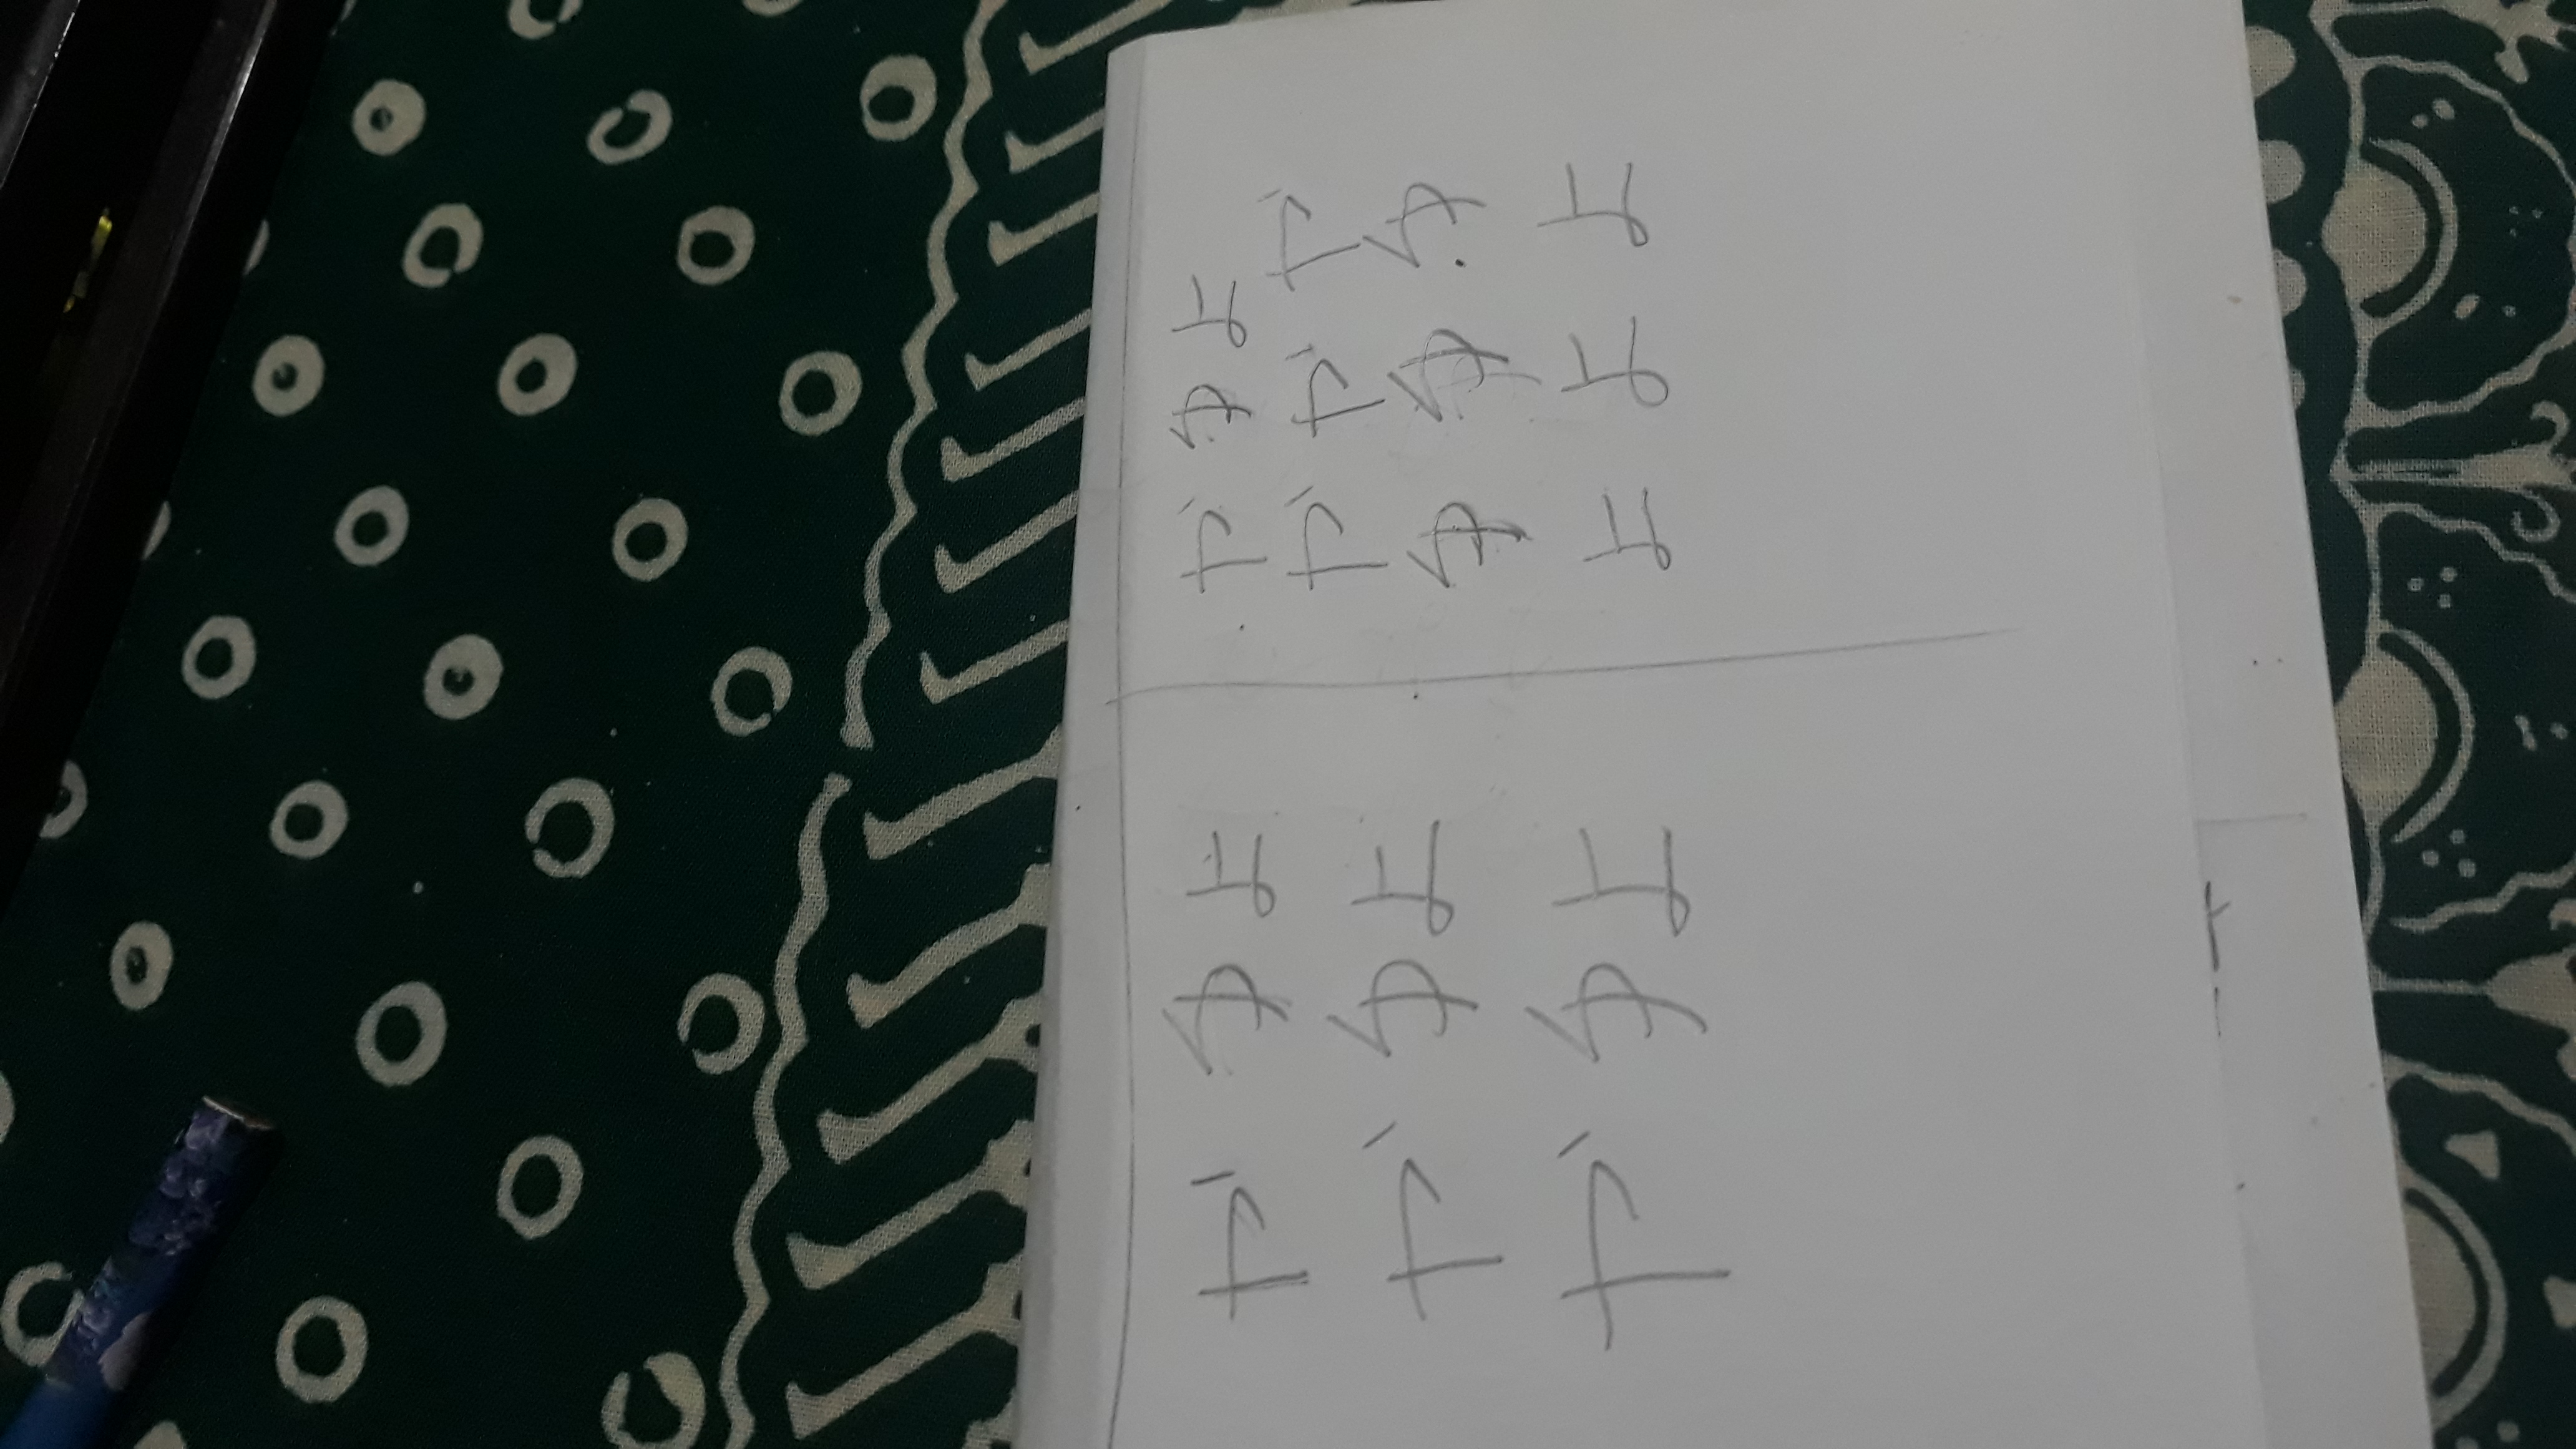 や ゆ よ
や ゆ よ
や ゆ よ
や ゆ よ
や や や
ゆ ゆ ゆ
よ よ よ